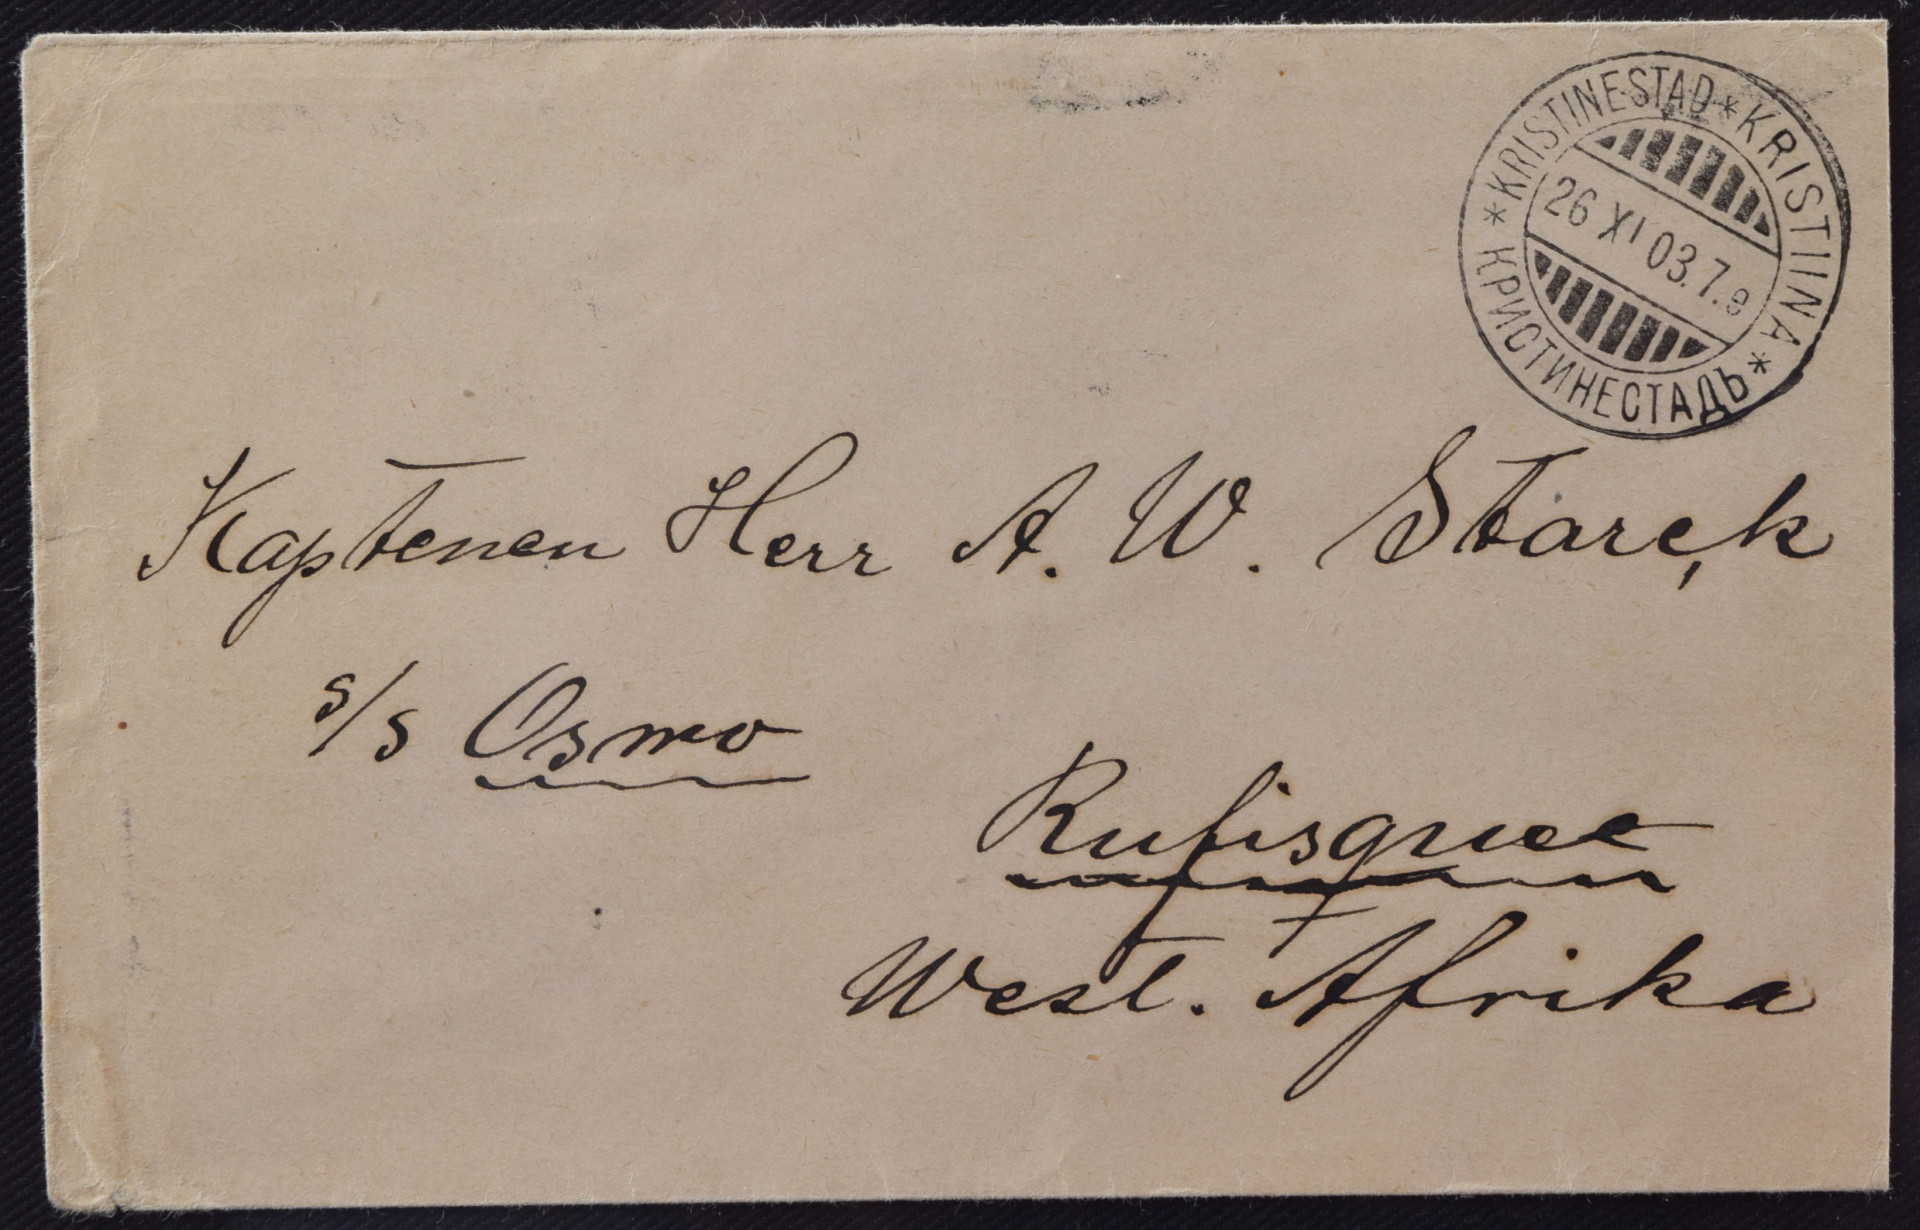 KRISTINESTAD * KRISTIINA * КРИСТИНЕСТАДЪ *
26 XI 03.7.e
Kaptenen Herr A. W. Starck
s/s Osmo
Rufisque
West. Afrika